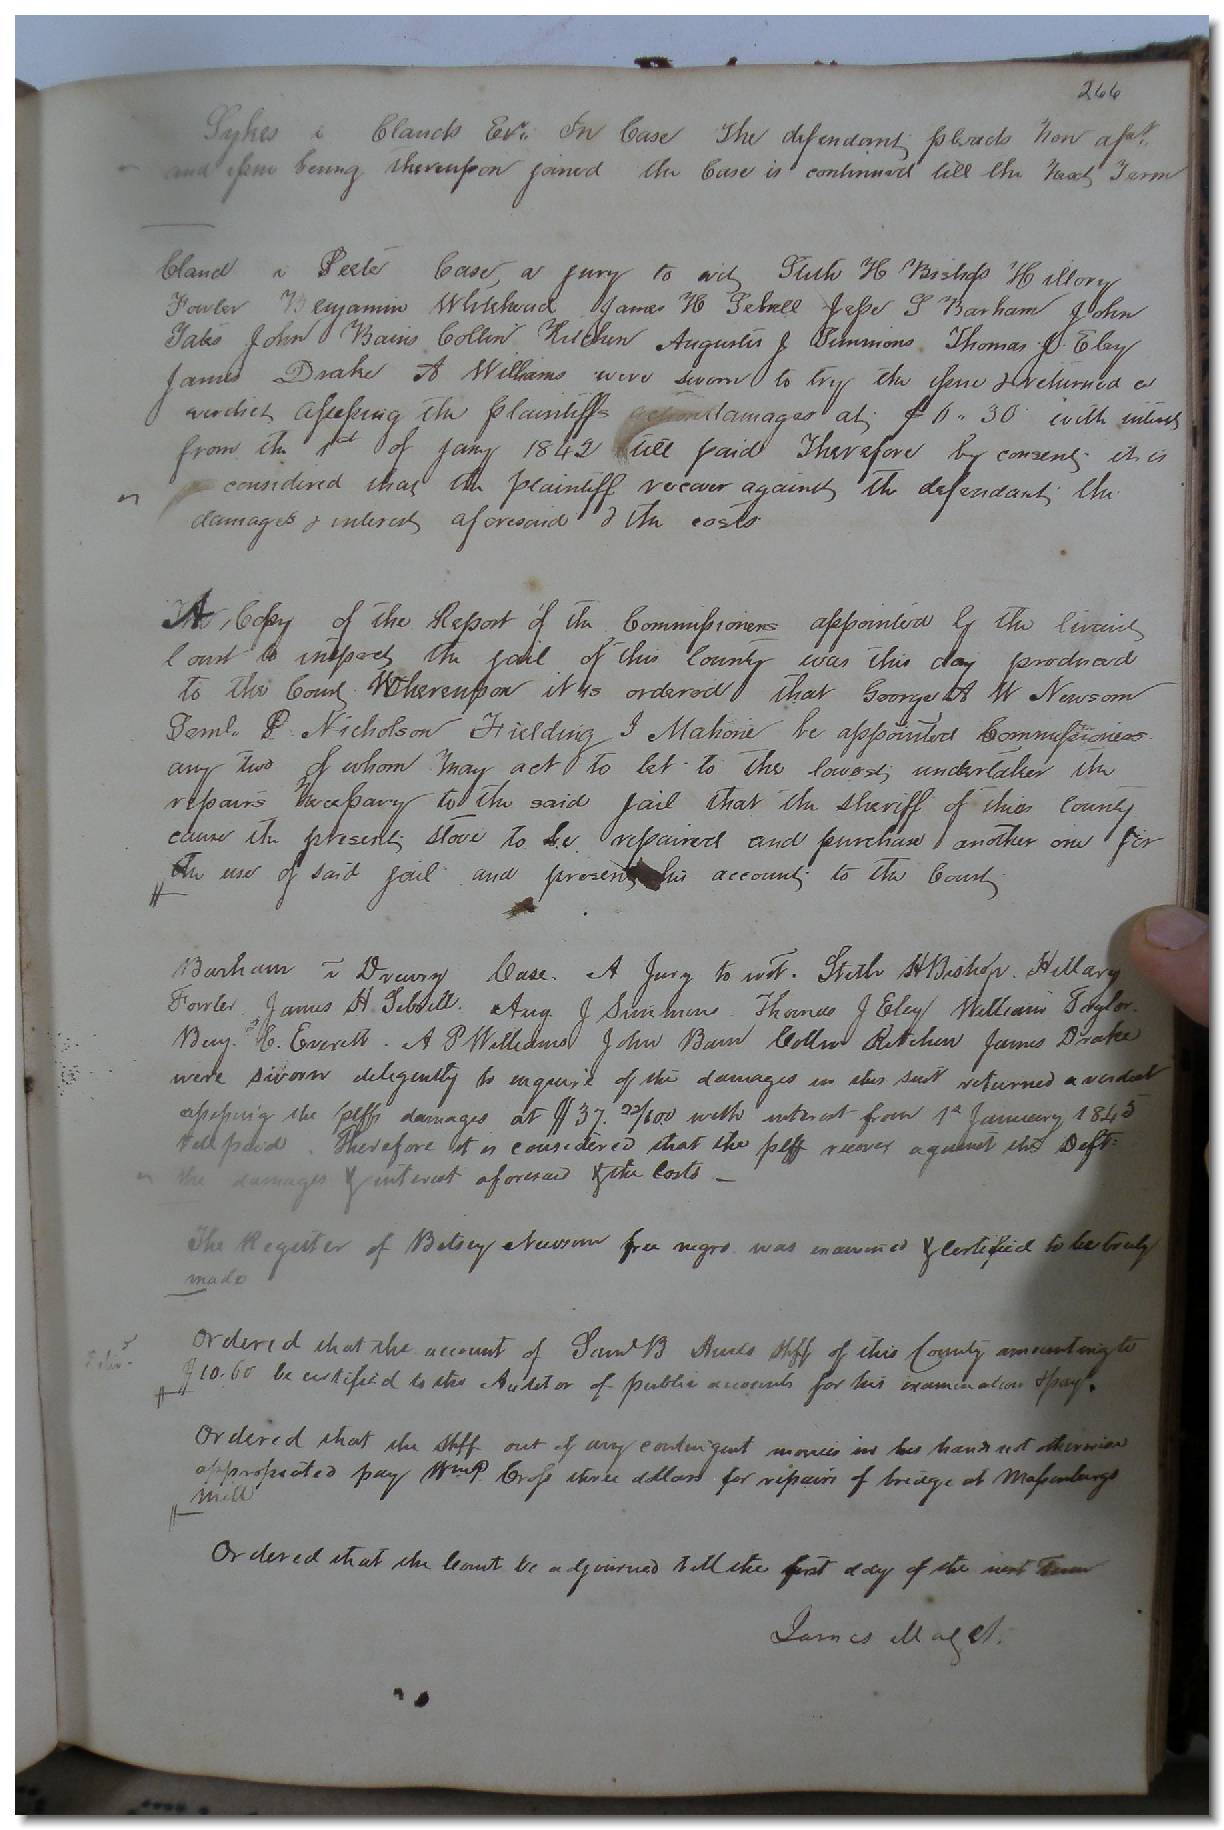 266
Sykes v Clauds Exr. In Case The defendant pleads Non asst.
and issue being thereupon joined the Case is continued till the Next Term
Claud v Peete Case, a jury to wit, Stith H Bishop Hillory
Fowler Benjamin Whitehead James H Sebrell Jesse S Barham John
John Bains Collin Kitchen Augustus J Simmons Thomas J Eley
James Drake A Williams were sworn to try the issue & returned a
verdict assessing the plaintiffs damages at $ 30 with interest
from the 1st of Jany 1842 till paid Therefore by consent it is
considered that the plaintiff recover against the defendant the
damages & interest aforesaid & the costs
A Copy of the Report of the Commissioners appointed by the Circuit
Court to inspect the jail of this County was this day produced
to the Court Whereupon it is ordered that George A W Newsom
P. Nicholson Fielding J Mahone be appointed Commissioners
any two of whom may act to let to the lowest undertaker the
repairs necessary to the said jail that the sheriff of this County
cause the present stove to be repaired and purchase another one for
the use of said jail and present his account to the Court
Barham v Drewry Case. A Jury to wit. Stith H Bishop. Hillary
Fowler James H Sebrell. Aug. J Simmons. Thomas J Eley William Taylor.
Benj. C. Everett. A P Williams John Bain Collin Kitchen James Drake
were sworn diligently to enquire of the damages in this suit returned a verdict
assessing the plffs damages at $37. 22/100 with interest from 1st January 1845
till paid. Therefore it is considered that the plff recover against the Deft.
the damages & interest aforesaid & the Costs _
The Register of Betsey Newsom free negro was examined & Certified to be truly
made
Ordered that the account of Saml B Hines Shff of this County amounting to
$10.60 be certified to the Auditor of public accounts for his examination & pay.
Ordered that the Shff out of any contingent monies in his hands not otherwise
appropriated pay Wm P Cross three dollars for repairs of bridge at Massenburgs
Mill
Ordered that the Court be adjourned till the first day of the next Term
James Maget.